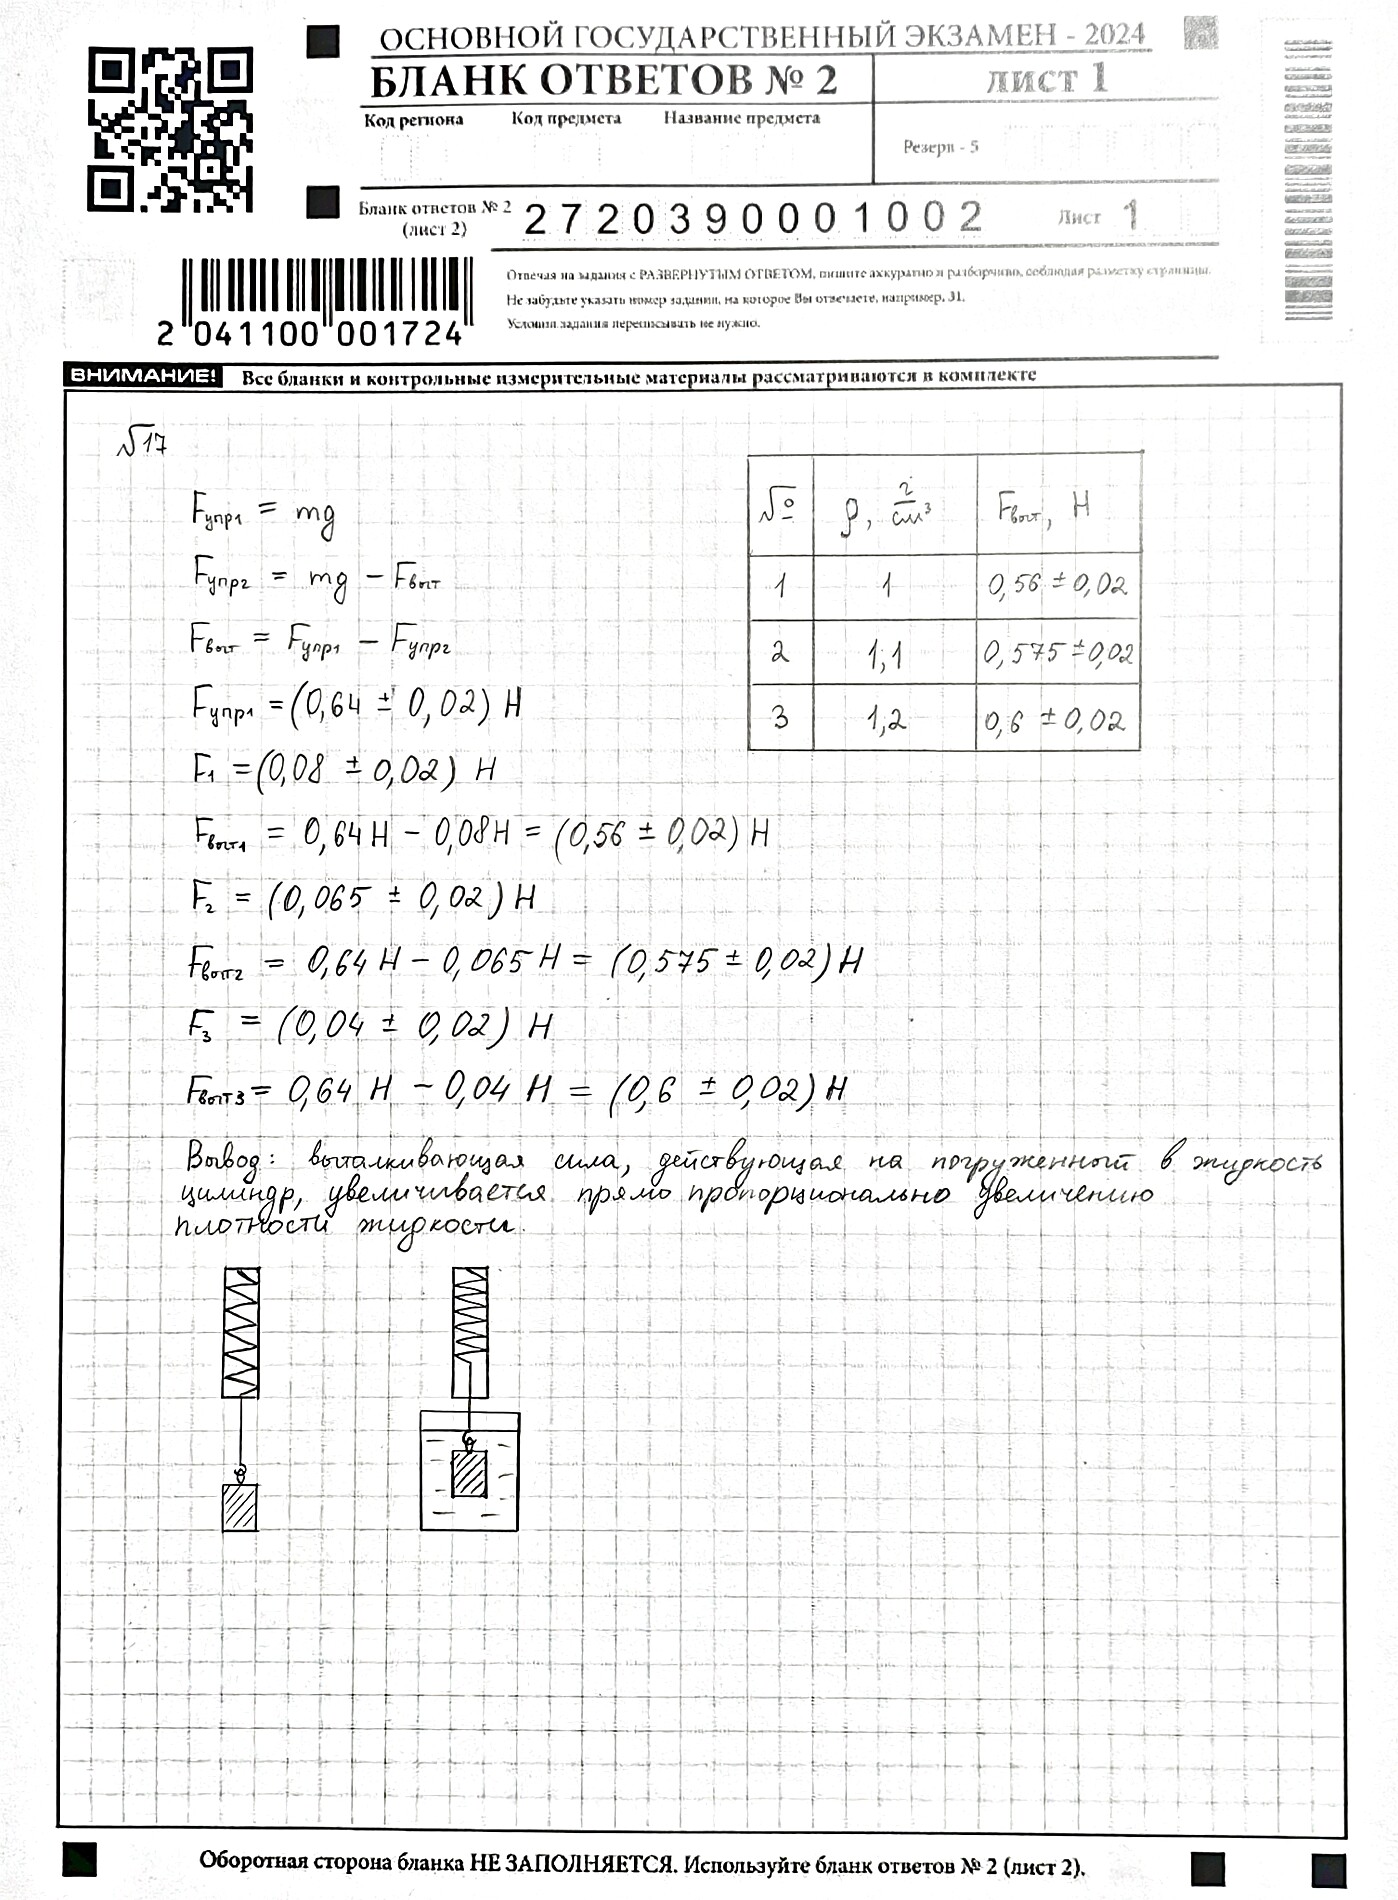 ОСНОВНОЙ ГОСУДАРСТВЕННЫЙ ЭКЗАМЕН - 2024
БЛАНК ОТВЕТОВ № 2
ЛИСТ 1
Код региона Код предмета Название предмета
Резерв - 5
Бланк ответов № 2
(лист 2)
2720390001002
Лист 1
Отвечая на задания с РАЗВЕРНУТЫМ ОТВЕТОМ, пишите аккуратно и разборчиво, соблюдая разметку страницы.
Не забудьте указать номер задания, на которое Вы отвечаете, например, 31.
Условия задания переписывать не нужно.
2 041100 001724
ВНИМАНИЕ! Все бланки и контрольные измерительные материалы рассматриваются в комплекте
№17
Fупр1 = mg
Fупр2 = mg − Fвыт
Fвыт = Fупр1 − Fупр2
Fупр1 = (0,64 ± 0,02) Н
F1 = (0,08 ± 0,02) Н
Fвыт1 = 0,64 Н − 0,08 Н = (0,56 ± 0,02) Н
F2 = (0,065 ± 0,02) Н
Fвыт2 = 0,64 Н − 0,065 Н = (0,575 ± 0,02) Н
F3 = (0,04 ± 0,02) Н
Fвыт3 = 0,64 Н − 0,04 Н = (0,6 ± 0,02) Н
№ ρ, г/см³ Fвыт, Н
1 1 0,56 ± 0,02
2 1,1 0,575 ± 0,02
3 1,2 0,6 ± 0,02
Вывод: выталкивающая сила, действующая на погруженный в жидкость
цилиндр, увеличивается прямо пропорционально увеличению
плотности жидкости.
Оборотная сторона бланка НЕ ЗАПОЛНЯЕТСЯ. Используйте бланк ответов № 2 (лист 2).